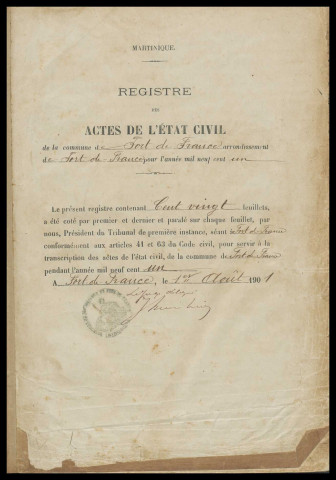 MARTINIQUE.
REGISTRE
DES
ACTES DE L'ÉTAT CIVIL
de la commune de Fort de France arrondissement
de Fort de France pour l'année mil neuf cent un
Le présent registre contenant Cent vingt feuillets,
a été coté par premier et dernier et paraphé sur chaque feuillet, par
nous, Président du Tribunal de première instance, séant à Fort de France
conformément aux articles 41 et 63 du Code civil, pour servir à la
transcription des actes de l'état civil, de la commune de Fort de France
pendant l'année mil neuf cent un
A Fort de France, le 1er Août 1901